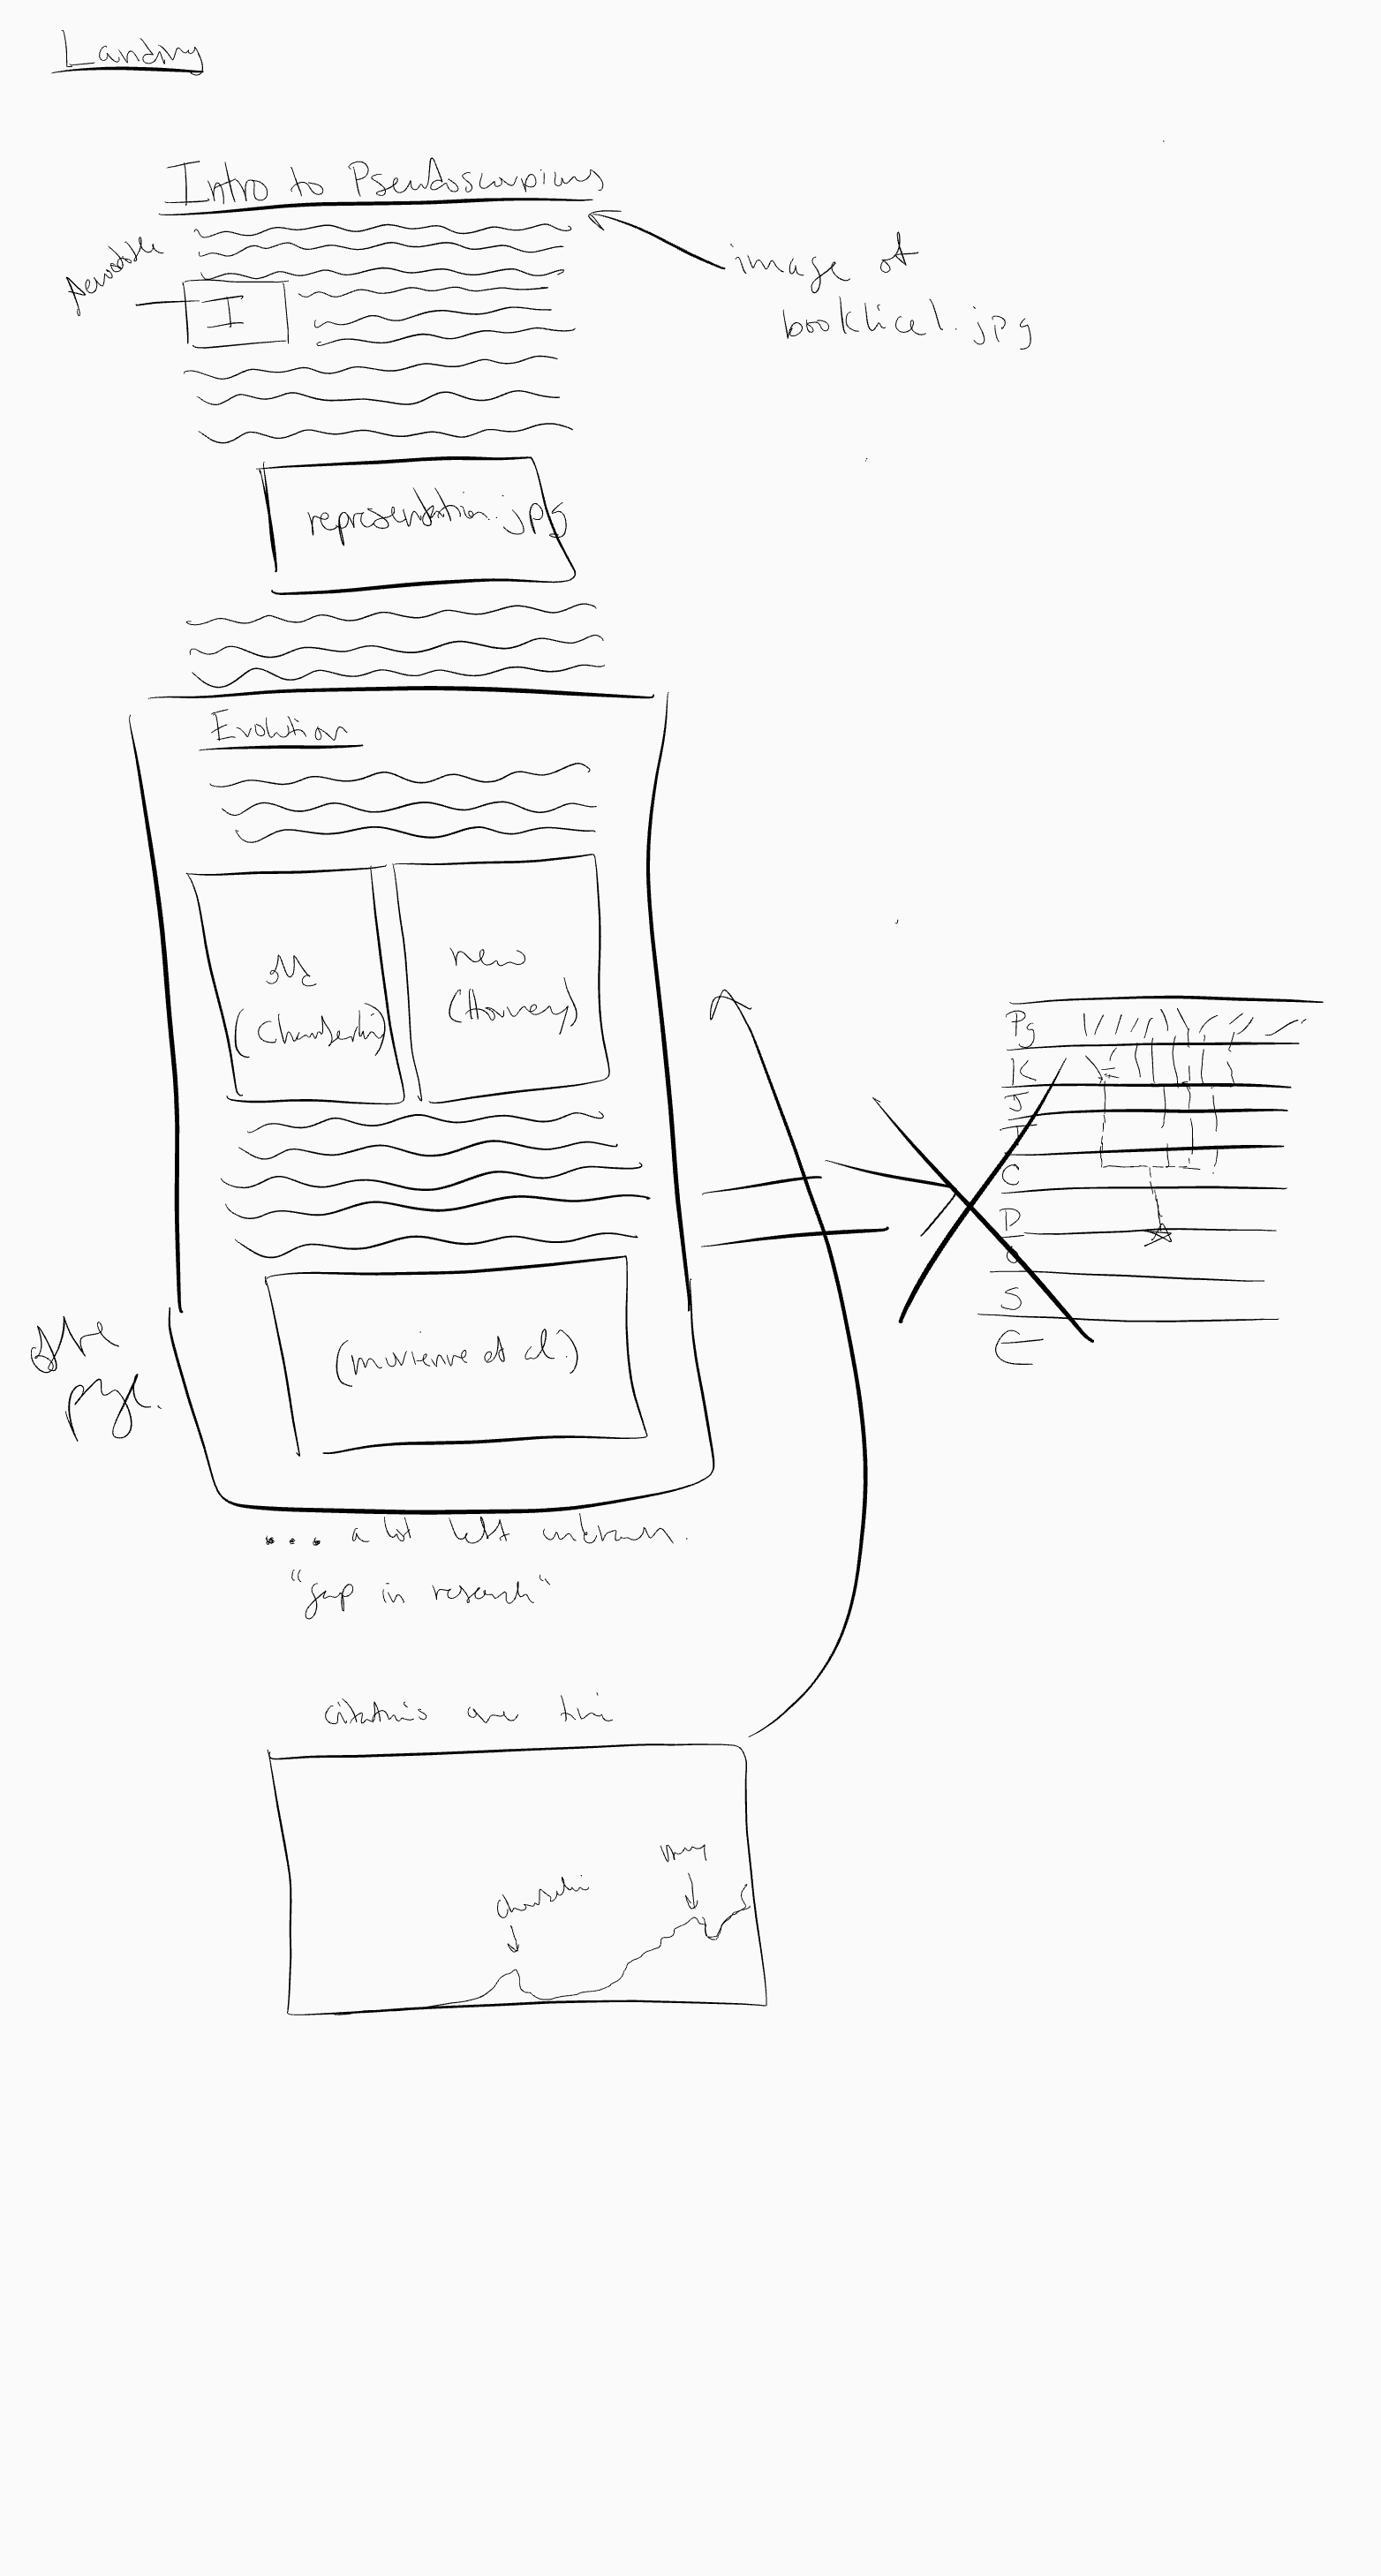 Landing
Intro to Pseudoscorpions
image of
booklice1.jpg
I
representation.jpg
Evolution
old
(Chamberlin)
new
(Harvey)
Pg
K
J
T
C
D
S
E
(murienne et al.)
other
page.
... a lot left unknown.
"gap in research"
citations over time
Chamberlin
Harvey